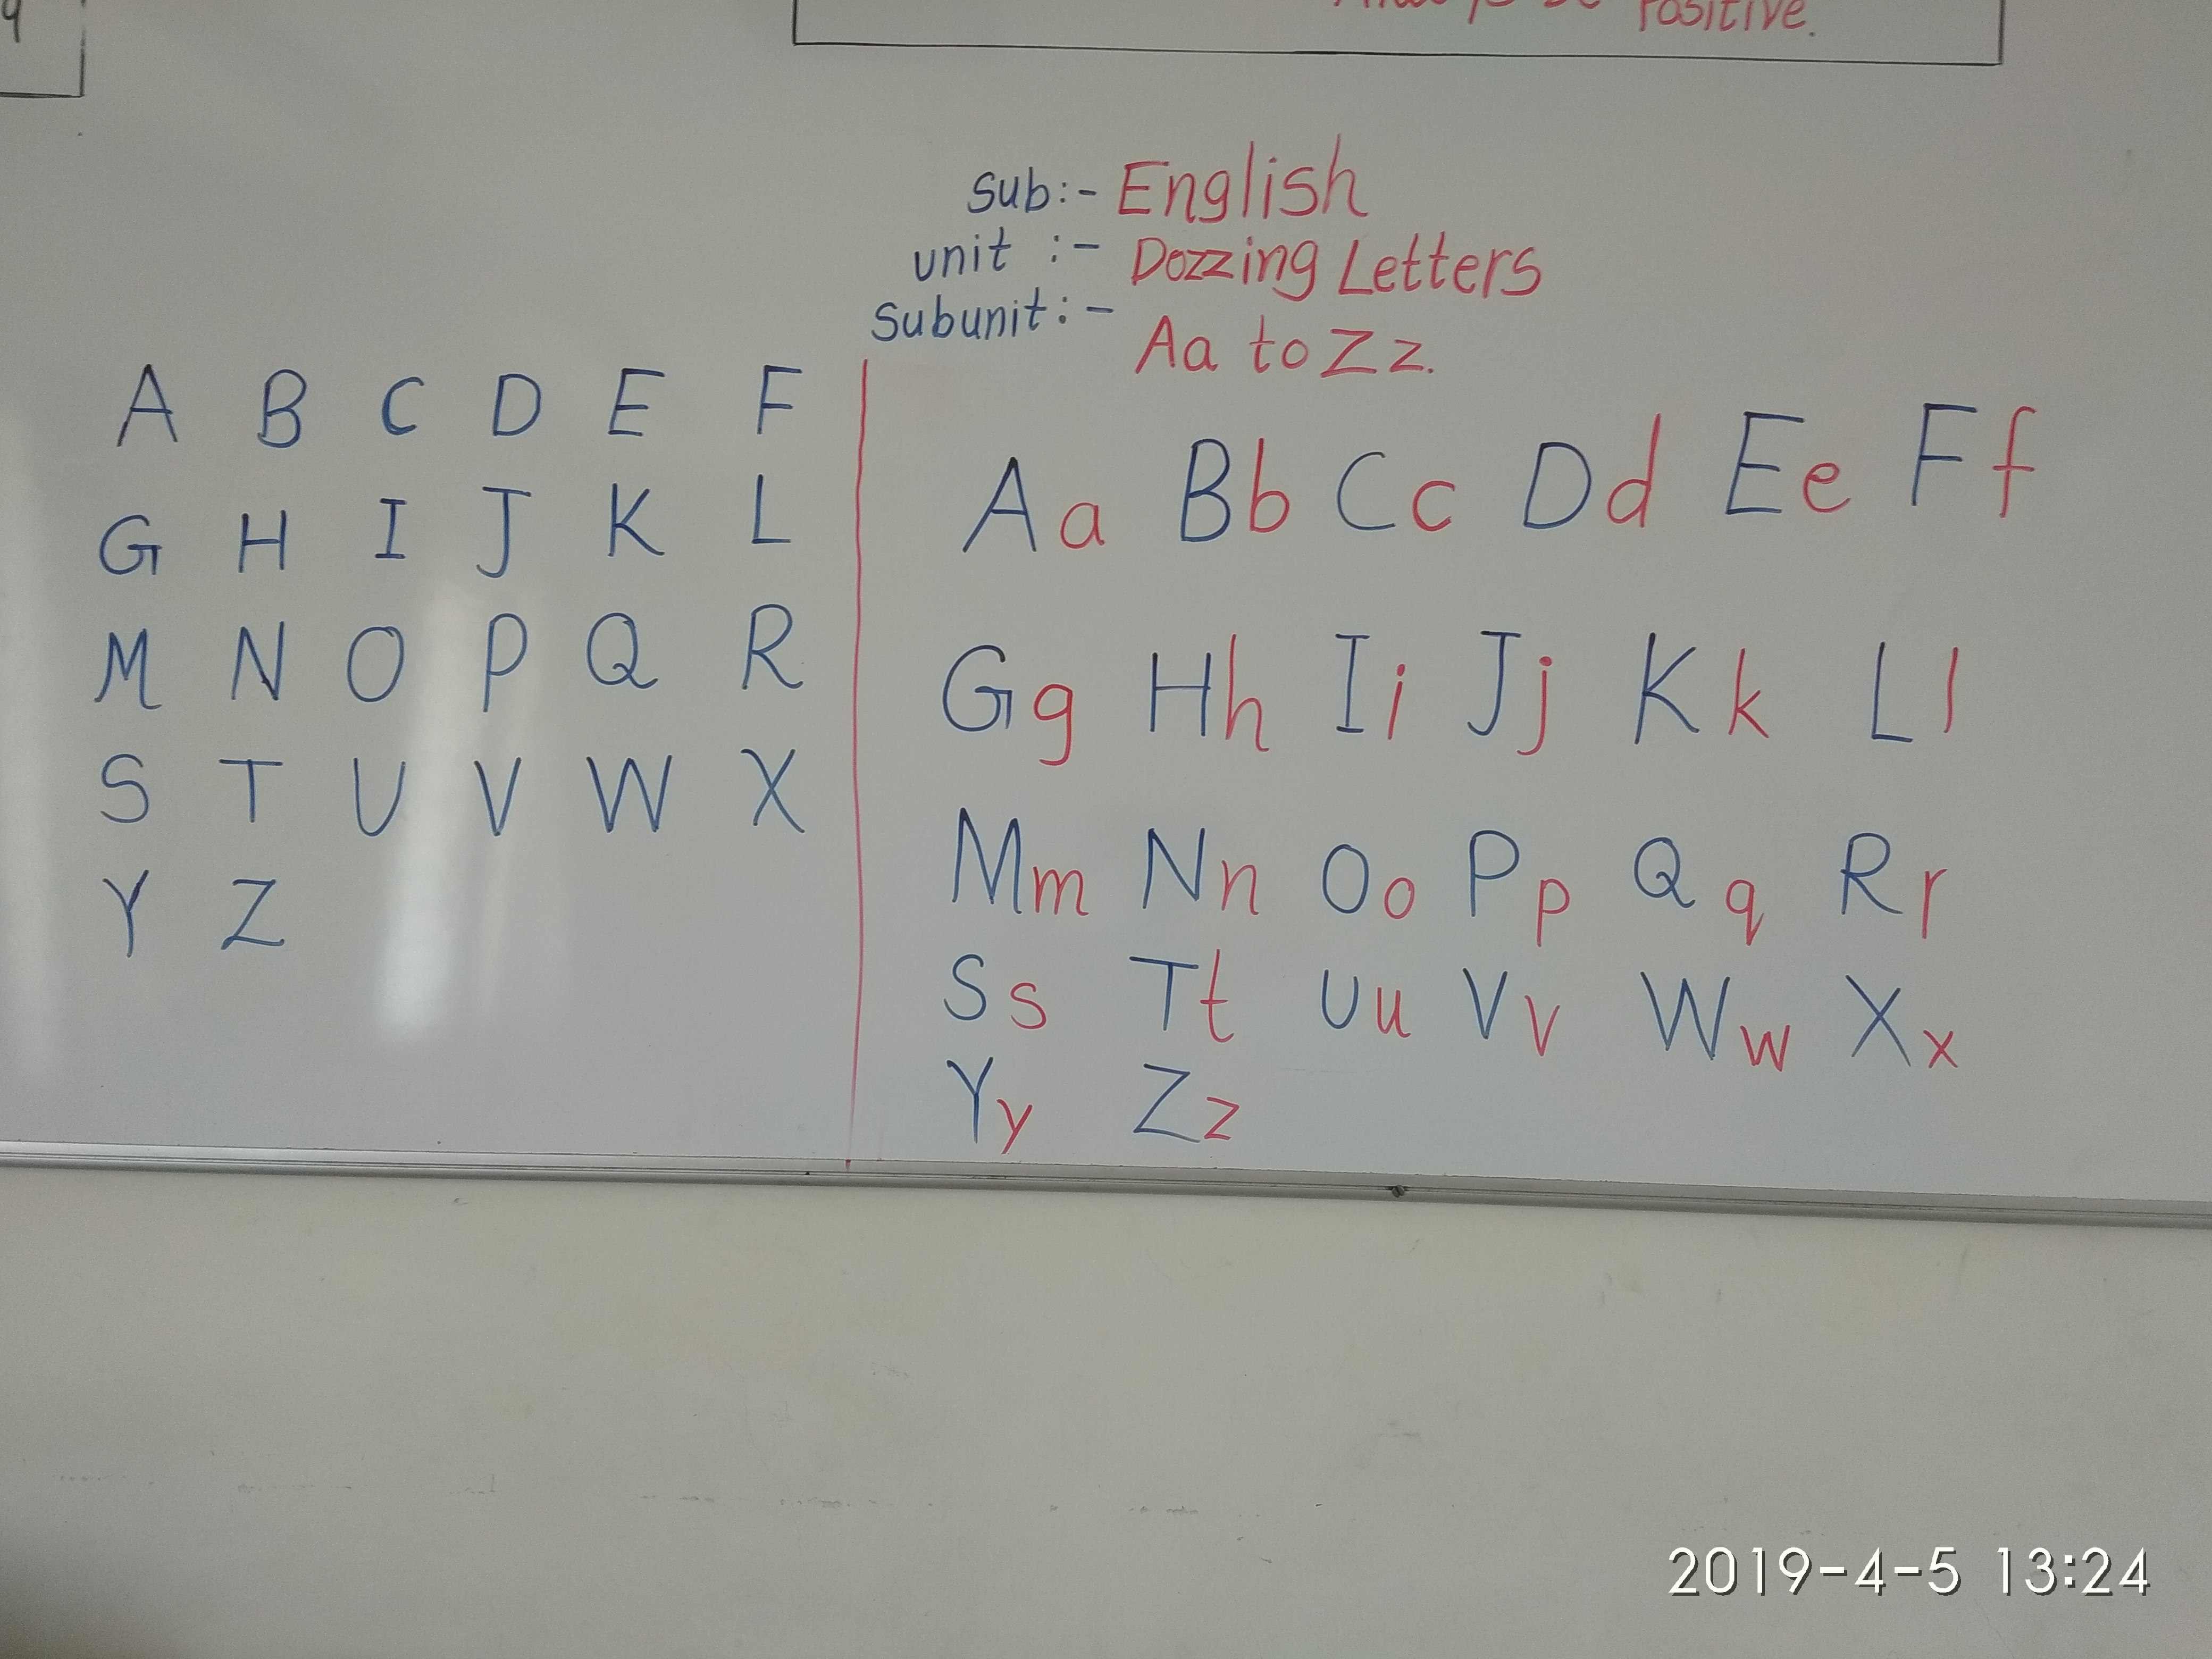 Positive.
Sub:- English
unit :- Dozzing Letters
Subunit:- Aa to Zz.
A B C D E F
G H I J K L
M N O P Q R
S T U V W X
Y Z
Aa Bb Cc Dd Ee Ff
Gg Hh Ii Jj Kk Ll
Mm Nn Oo Pp Qq Rr
Ss Tt Uu Vv Ww Xx
Yy Zz
2019-4-5 13:24